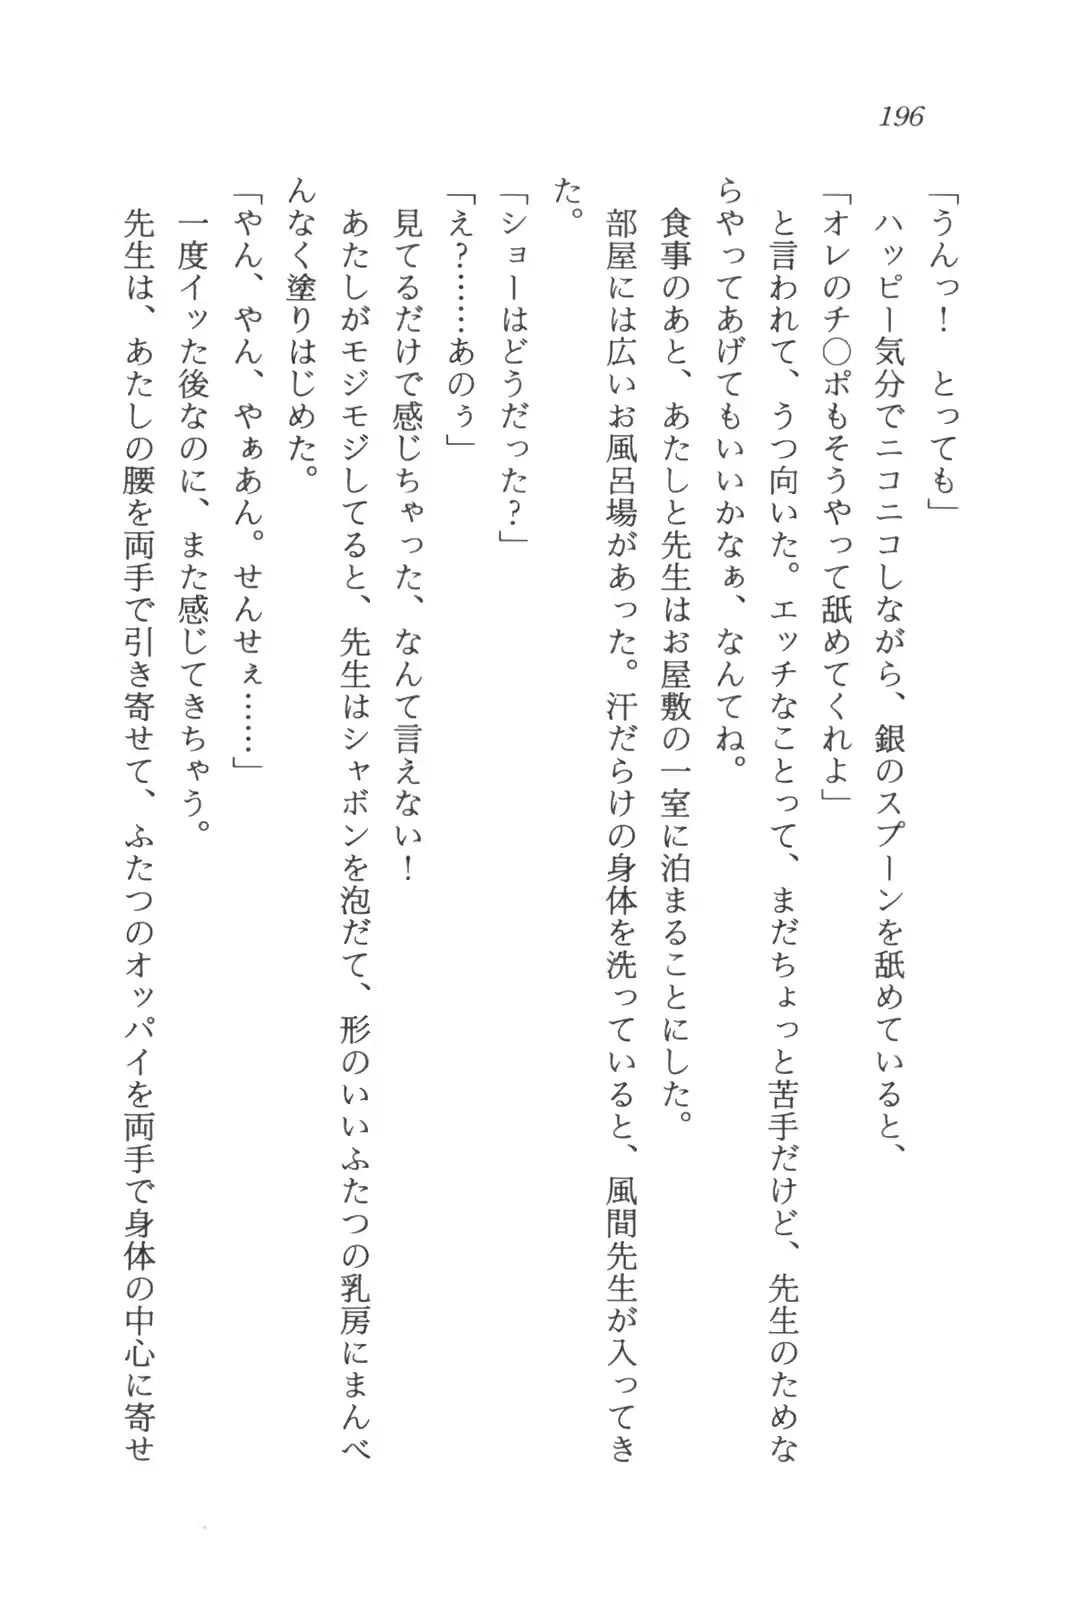 196
「うんっ！　とっても」
ハッピー気分でニコニコしながら、銀のスプーンを舐めていると、
「オレのチ〇ポもそうやって舐めてくれよ」
と言われて、うつ向いた。エッチなことって、まだちょっと苦手だけど、先生のためな
らやってあげてもいいかなぁ、なんてね。
食事のあと、あたしと先生はお屋敷の一室に泊まることにした。
部屋には広いお風呂場があった。汗だらけの身体を洗っていると、風間先生が入ってき
た。
「ショーはどうだった？」
「え？……あのぅ」
見てるだけで感じちゃった、なんて言えない！
あたしがモジモジしてると、先生はシャボンを泡だて、形のいいふたつの乳房にまんべ
んなく塗りはじめた。
「やん、やん、やぁあん。せんせぇ……」
一度イッた後なのに、また感じてきちゃう。
先生は、あたしの腰を両手で引き寄せて、ふたつのオッパイを両手で身体の中心に寄せ